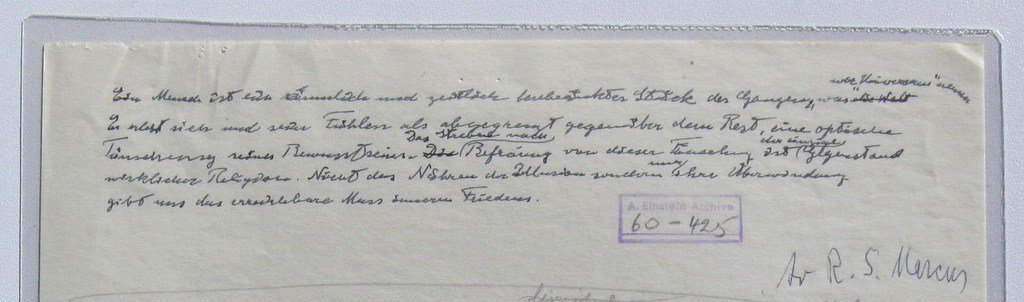 wir "Universum" nennen
Ein Mensch ist ein räumlich und zeitlich beschränktes Stück des Ganzen, was die Welt
Er erlebt sich und sein Fühlen als abgegrenzt gegenüber dem Rest, eine optische
Das Streben nach der einzige
Täuschung seines Bewusstseins. Die Befreiung von dieser Täuschung ist Gegenstand
nur
wirklicher Religion. Nicht das Nähren der Illusion sondern ihre Überwindung
gibt uns das erreichbare Mass inneren Friedens.
A. Einstein Archive
60-425
R. S. Marcus